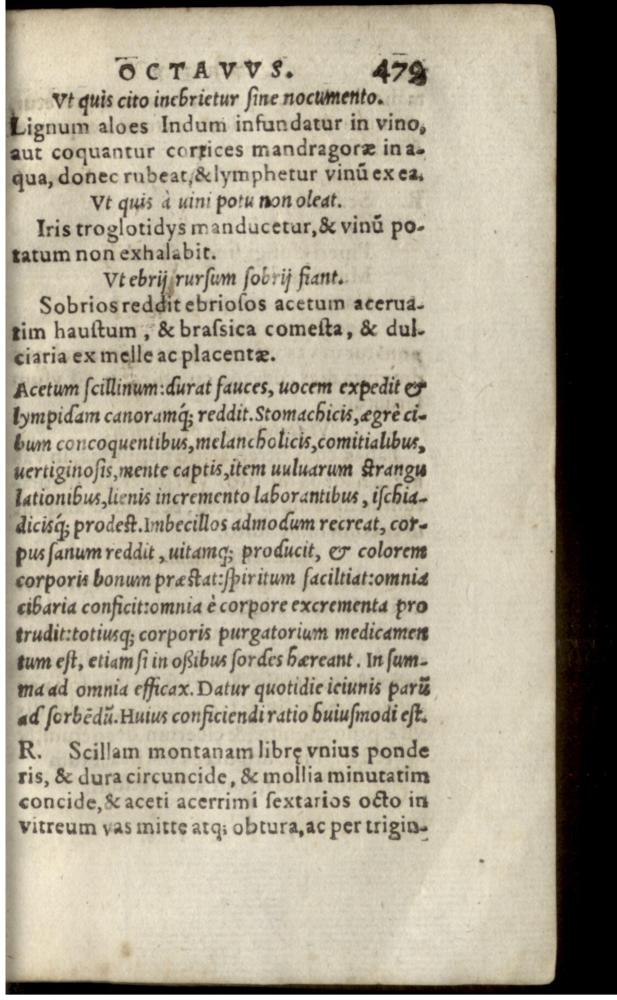 OCTAVVS. 479
Vt quis cito inebrietur sine nocumento.
Lignum aloes Indum infundatur in vino,
aut coquantur cortices mandragoræ in a-
qua, donec rubeat, & lymphetur vinū ex ea.
Vt quis à uini potu non oleat.
Iris troglotidys manducetur, & vinū po-
tatum non exhalabit.
Vt ebrij rursum sobrij fiant.
Sobrios reddit ebriosos acetum acerua-
tim haustum, & brassica comesta, & dul-
ciaria ex melle ac placentæ.
Acetum scillinum: durat fauces, uocem expedit &
lympidam canoramq; reddit. Stomachicis, ægrè ci-
bum concoquentibus, melancholicis, comitialibus,
uertiginosis, mente captis, item uuluarum strangu
lationibus, lienis incremento laborantibus, ischia-
dicisq́; prodest. Imbecillos admodum recreat, cor-
pus sanum reddit, uitamq; producit, & colorem
corporis bonum præstat: spiritum faciltiat: omnia
cibaria conficit: omnia è corpore excrementa pro
trudit: totiusq; corporis purgatorium medicamen
tum est, etiam si in oßibus sordes hæreant. In sum-
ma ad omnia efficax. Datur quotidie ieiunis parū
ad sorbēdū. Huius conficiendi ratio huiusmodi est.
R. Scillam montanam librę vnius ponde
ris, & dura circuncide, & mollia minutatim
concide, & aceti acerrimi sextarios octo in
vitreum vas mitte atq; obtura, ac per trigin-